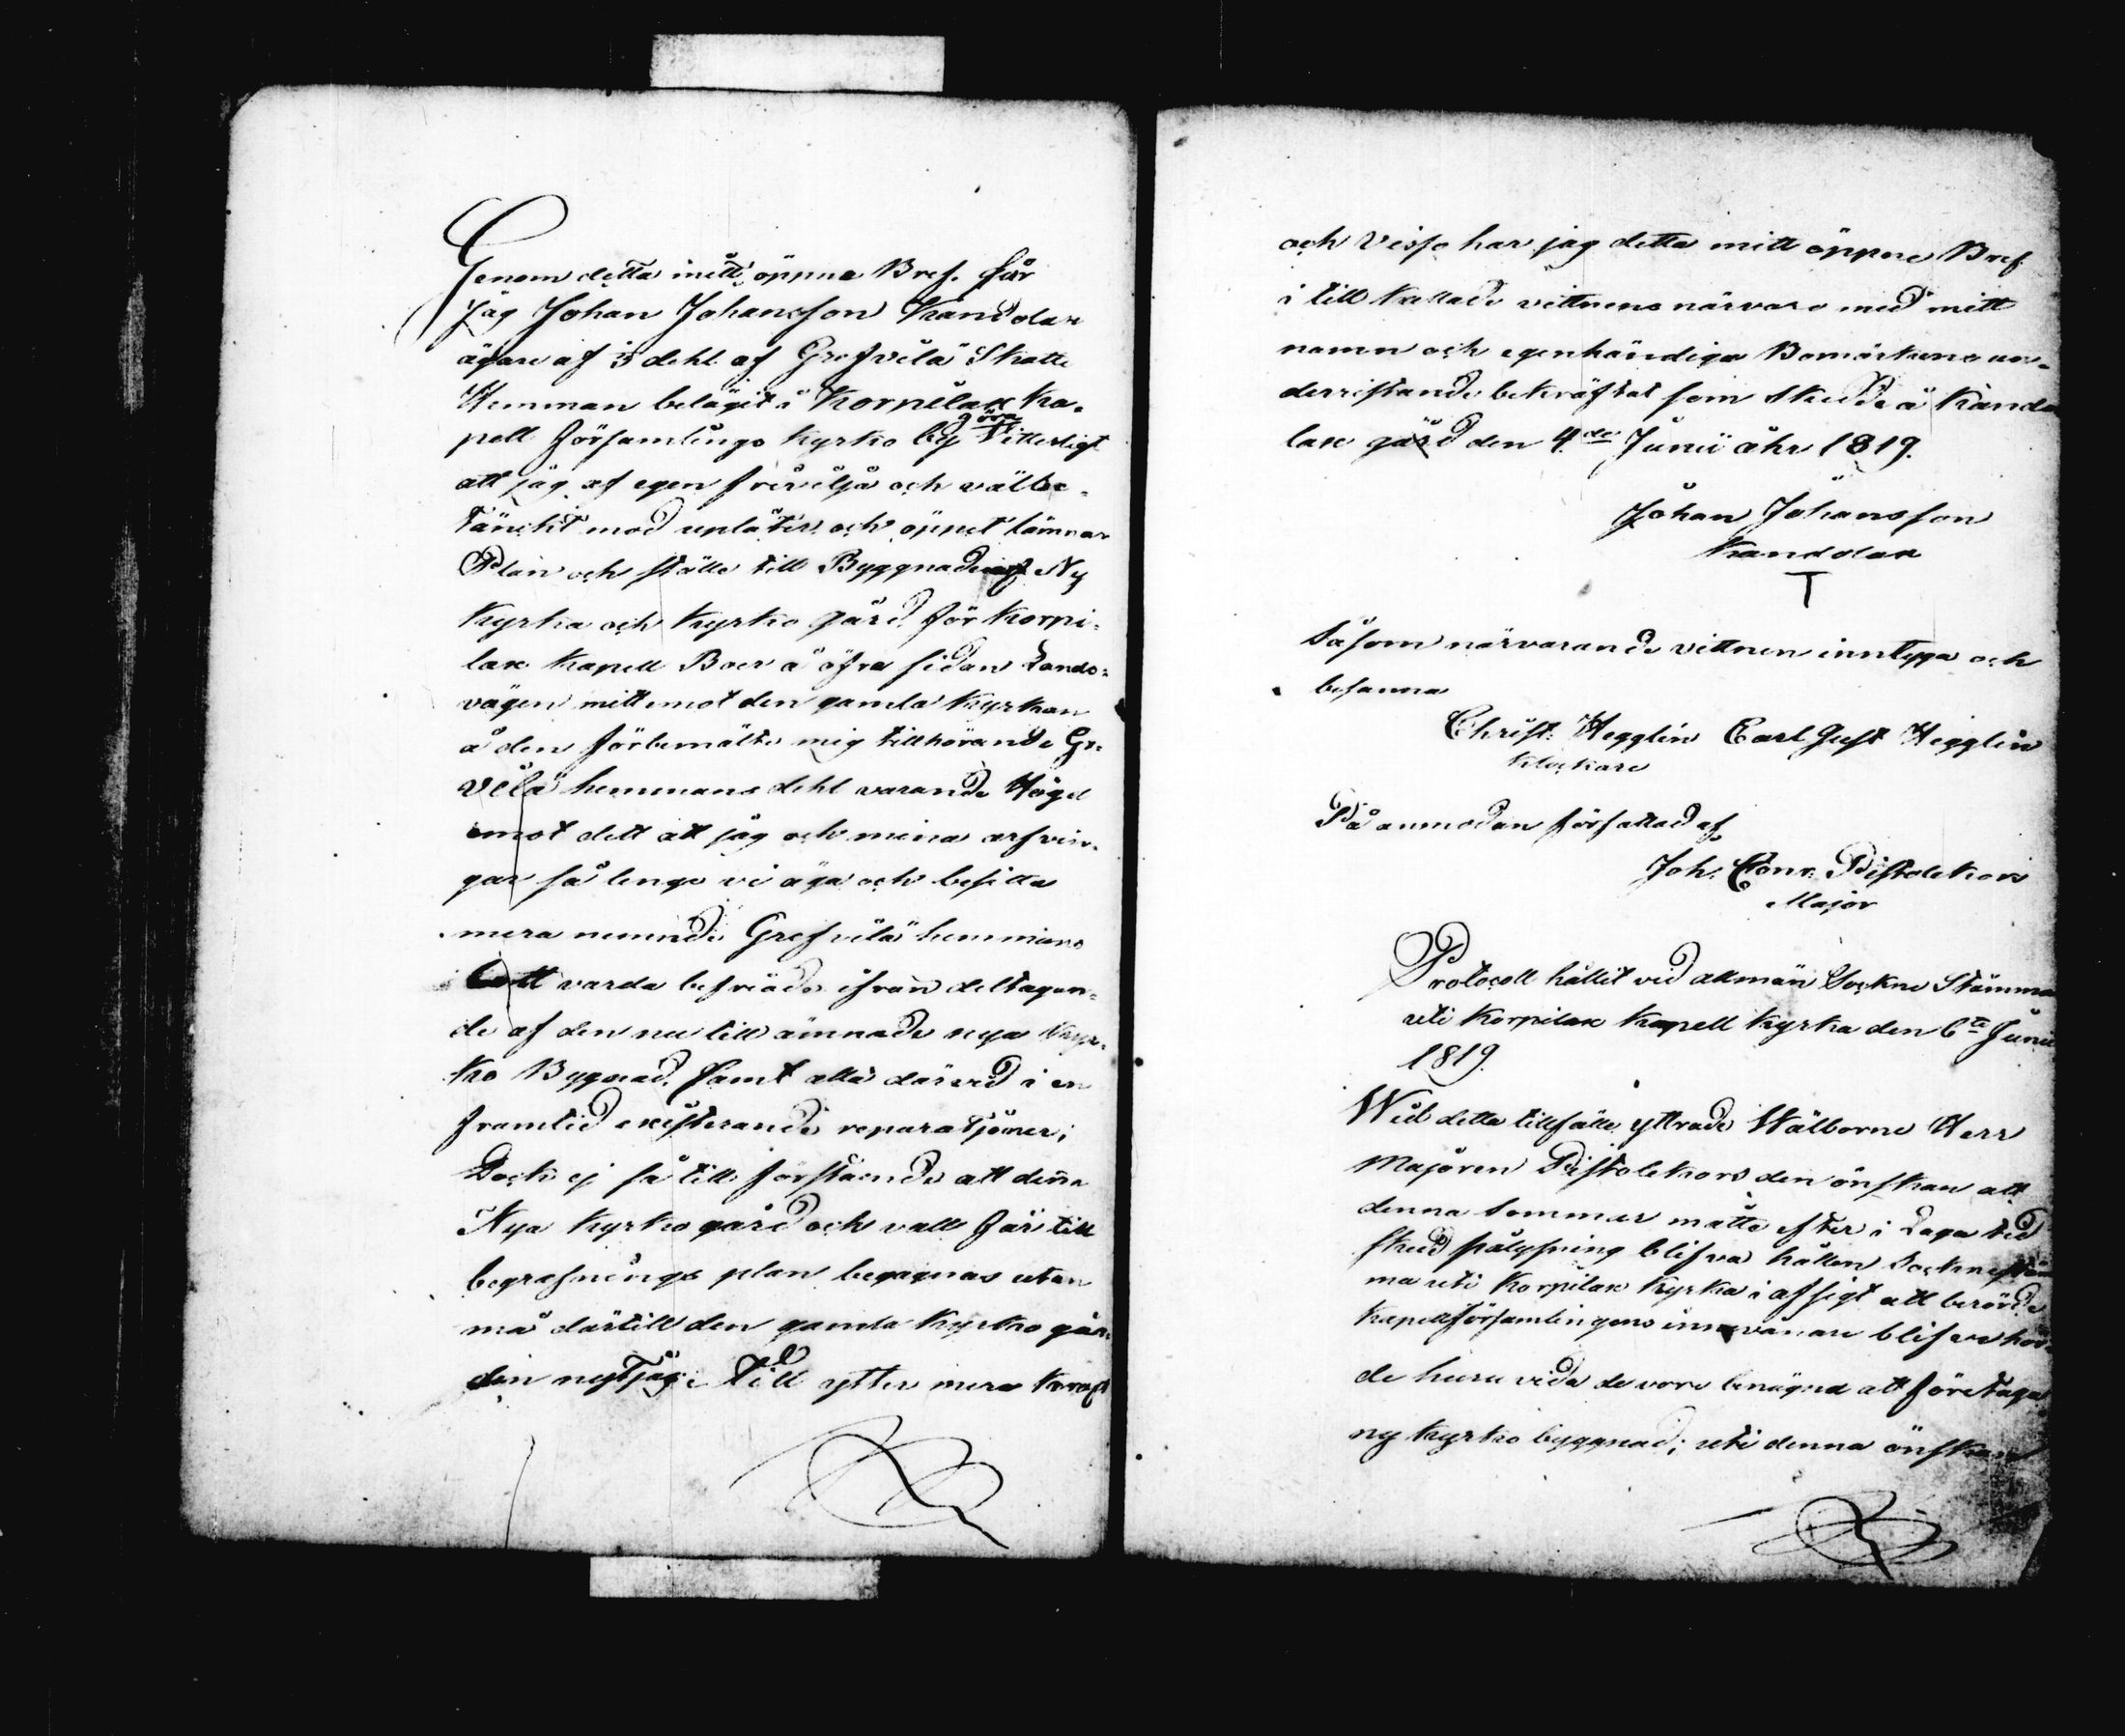 Genom detta mitt öppna Bref. får
Jag Johan Johansson Kandolax
ägare af 1/3 dehl af Grefvilä Skatte
Hemman belägit i Korpilax Ka-
pell Församlings Kyrko by göra Vitterligt
att jag af egen fri vilja och välbe-
tänckt mod uplåter och öppet lämnar
Plan och ställe till Byggnad af Ny
Kyrka och Kyrko gård för Korpi-
lax Kapell Boer å öfra sidan Lands-
vägen mitt emot den gamla Kyrkan
å den förbemälte mig tillhörande Gre-
vilä hemmans dehl varande Högd
emot dett att jag och mina arfvin-
gar så lenge vi äga och besitta
mera nemnde Grefvilä hemmans
lott varda befriade ifrån deltagan-
de af den nu till ämnade nya Kyr-
ko Byggnad, samt alla därvid i en
framtid existerande reparatjoner;
Dock ej så till förståendes att denna
Nya Kyrko gård och vall får till
begrafnings plan begagnas utan
må därtill den gamla Kyrko går-
den nytjas: Till ytter mera kraft
och Visso har jag detta mitt öppne Bref
i till kallade vittnens närvaro med mitt
namn och egenhändiga Bomärkens un-
derristande bekräftat som skedde å Kando
lax gård den 4.de Junii åhr 1819.
Johan Johansson
Kandolax
T
Såsom närvarande vittnen inntyga och
besanna
Christ. Hegglin Carl Gust Hegglin
Klockare
På anmodan författad af
Joh. Conr. Pistolekors
Major
Protocoll hållit vid allmän Sockne Stämma
uti Korpilax Kapell Kyrka den 6te Junii
1819.
Wid detta tillfälle yttrade Wälborne Herr
Majoren Pistolekors den önskan att
denna Sommar måtte efter i Laga tid
skedd pålysning blifva hållen Sockne stäm
ma uti Korpilax Kyrka i afsigt att berörde
Kapellförsamlingens innevånare blifva hör-
de huru vida de vore benägna att företaga
ny Kyrko byggnad; uti denna önskan